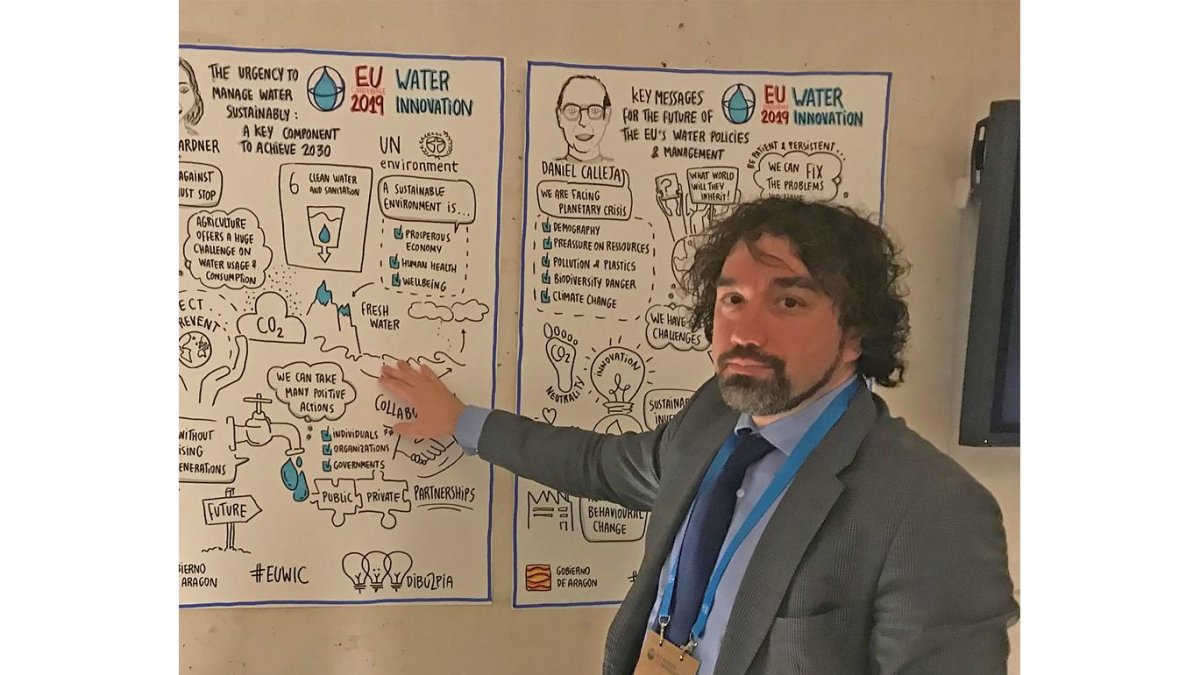 THE URGENCY TO
MANAGE WATER
SUSTAINABLY:
A KEY COMPONENT
TO ACHIEVE 2030
EU
CONFERENCE
2019
WATER
INNOVATION
ARDNER
UN
environment
AGAINST
UST STOP
6 CLEAN WATER
AND SANITATION
A SUSTAINABLE
ENVIRONMENT IS...
PROSPEROUS
ECONOMY
HUMAN HEALTH
WELLBEING
AGRICULTURE
OFFERS A HUGE
CHALLENGE ON
WATER USAGE &
CONSUMPTION
ECT
REVENT
CO2
FRESH
WATER
WE CAN TAKE
MANY POSITIVE
ACTIONS
COLLAB
INDIVIDUALS
ORGANIZATIONS
GOVERNMENTS
WITHOUT
ISING
ENERATIONS
PUBLIC
PRIVATE
PARTNERSHIPS
FUTURE
IERNO
ARAGON
#EUWIC
DIBÚ2PIA
KEY MESSAGES
FOR THE FUTURE OF
THE EU'S WATER POLICIES
& MANAGEMENT
EU
CONFERENCE
2019
WATER
INNOVATION
DANIEL CALLEJA
WE ARE FACING
PLANETARY CRISIS
DEMOGRAPHY
PREASSURE ON RESOURCES
POLLUTION & PLASTICS
BIODIVERSITY DANGER
CLIMATE CHANGE
?
WHAT WORLD
WILL THEY
INHERIT!
BE PATIENT & PERSISTENT...
WE CAN FIX
THE PROBLEMS
WE HAVE
CHALLENGES
CO2
NEUTRALITY
INNOVATION
SUSTAINAB
INV
BEHAVIOURAL
CHANGE
GOBIERNO
DE ARAGON